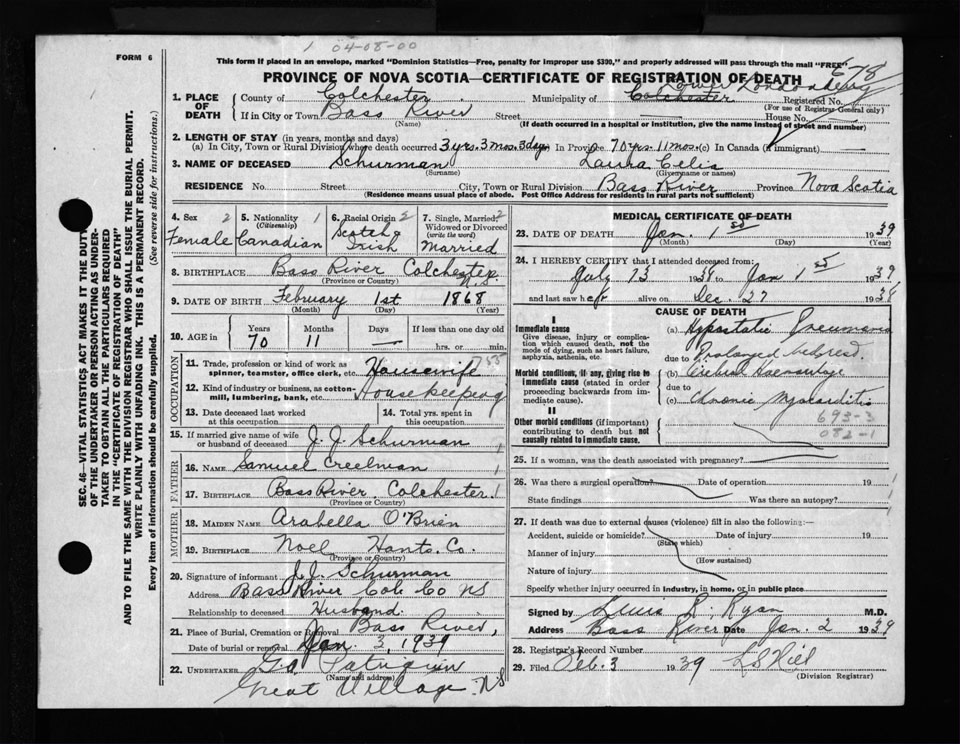 1 04-08-00
FORM 6
This form if placed in an envelope, marked "Dominion Statistics—Free, penalty for improper use $300," and properly addressed will pass through the mail "FREE"
PROVINCE OF NOVA SCOTIA—CERTIFICATE OF REGISTRATION OF DEATH
678
1. PLACE OF DEATH
County of Colchester
Municipality of Colchester Lower Londonderry
Registered No.
(For use of Registrar-General only)
If in City or Town Bass River Street House No.
(Name) (If death occurred in a hospital or institution, give the name instead of street and number)
2. LENGTH OF STAY (in years, months and days)
(a) In City, Town or Rural Division where death occurred 3 yrs. 3 mos. 3 days In Province 70 yrs. 11 mos. (c) In Canada (if immigrant) —
3. NAME OF DECEASED Schurman Laura Celia
(Surname) (Given name or names)
RESIDENCE No. Street City, Town or Rural Division Bass River Province Nova Scotia
(Residence means usual place of abode. Post Office Address for residents in rural parts not sufficient)
SEC. 46—VITAL STATISTICS ACT MAKES IT THE DUTY
OF THE UNDERTAKER OR PERSON ACTING AS UNDER-
TAKER TO OBTAIN ALL THE PARTICULARS REQUIRED
IN THE "CERTIFICATE OF REGISTRATION OF DEATH"
AND TO FILE THE SAME WITH THE DIVISION REGISTRAR WHO SHALL ISSUE THE BURIAL PERMIT.
WRITE PLAINLY WITH UNFADING INK. THIS IS A PERMANENT RECORD.
Every item of information should be carefully supplied. (See reverse side for instructions.)
4. Sex 2
Female
5. Nationality 1
(Citizenship)
Canadian
6. Racial Origin 2
Scotch &
Irish
7. Single, Married, 2
Widowed or Divorced
(write the word)
Married
8. BIRTHPLACE Bass River Colchester N.S.
(Province or Country)
9. DATE OF BIRTH February 1st 1868
(Month) (Day) (Year)
10. AGE in
Years Months Days If less than one day old
70 11 — hrs. or min.
OCCUPATION
11. Trade, profession or kind of work as
spinner, teamster, office clerk, etc. Housewife
12. Kind of industry or business, as cotton-
mill, lumbering, bank, etc. Housekeeping
13. Date deceased last worked
at this occupation
14. Total yrs. spent in
this occupation
15. If married give name of wife
or husband of deceased J. J. Schurman
FATHER
16. NAME Samuel Creelman
17. BIRTHPLACE Bass River. Colchester.
(Province or Country)
MOTHER
18. MAIDEN NAME Arabella O'Brien
19. BIRTHPLACE Noel Hants. Co.
(Province or Country)
20. Signature of informant J. J. Schurman
Address Bass River Col. Co NS
Relationship to deceased Husband.
21. Place of Burial, Cremation or Removal Bass River,
Date of burial or removal Jan. 3, 1939
22. UNDERTAKER
(Name and address)
Great Village. NS
MEDICAL CERTIFICATE OF DEATH
23. DATE OF DEATH Jan. 1st 1939
(Month) (Day) (Year)
24. I HEREBY CERTIFY that I attended deceased from:
July 13 1938 to Jan 1st 1939
and last saw her alive on Dec. 27 1938
CAUSE OF DEATH
I
Immediate cause
Give disease, injury or complica-
tion which caused death, not the
mode of dying, such as heart failure,
asphyxia, asthenia, etc.
(a) Hypostatic Pneumonia
due to Prolonged in bed.
Morbid conditions, if any, giving rise to
immediate cause (stated in order
proceeding backwards from im-
mediate cause).
(b) Cerebral Haemorrhage
due to
(c) Chronic Myocarditis
II
Other morbid conditions (if important)
contributing to death but not
causally related to immediate cause.
693-3
082-1
25. If a woman, was the death associated with pregnancy?
26. Was there a surgical operation? Date of operation 19
State findings Was there an autopsy?
27. If death was due to external causes (violence) fill in also the following:—
Accident, suicide or homicide? Date of injury 19
(State which)
Manner of injury
(How sustained)
Nature of injury
Specify whether injury occurred in industry, in home, or in public place
Signed by Lewis R. Ryan M.D.
Address Bass River Date Jan. 2 1939
28. Registrar's Record Number
29. Filed Feb. 3 1939 L S Hill
(Division Registrar)